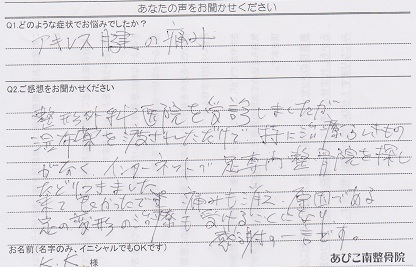 あなたの声をお聞かせください
Q1.どのような症状でお悩みでしたか？
アキレス腱の痛み
Q2.ご感想をお聞かせください
整形外科医院を受診しましたが
湿布薬を渡されただけで特に治療らしきもの
がなく、インターネットで足専門整骨院を探し
たどりつきました
来て良かったです 痛みも消え 原因である
足の変形の治療も受けることになり
感謝の一言です。
お名前(名字のみ、イニシャルでもOKです)
K.K. 様
あびこ南整骨院